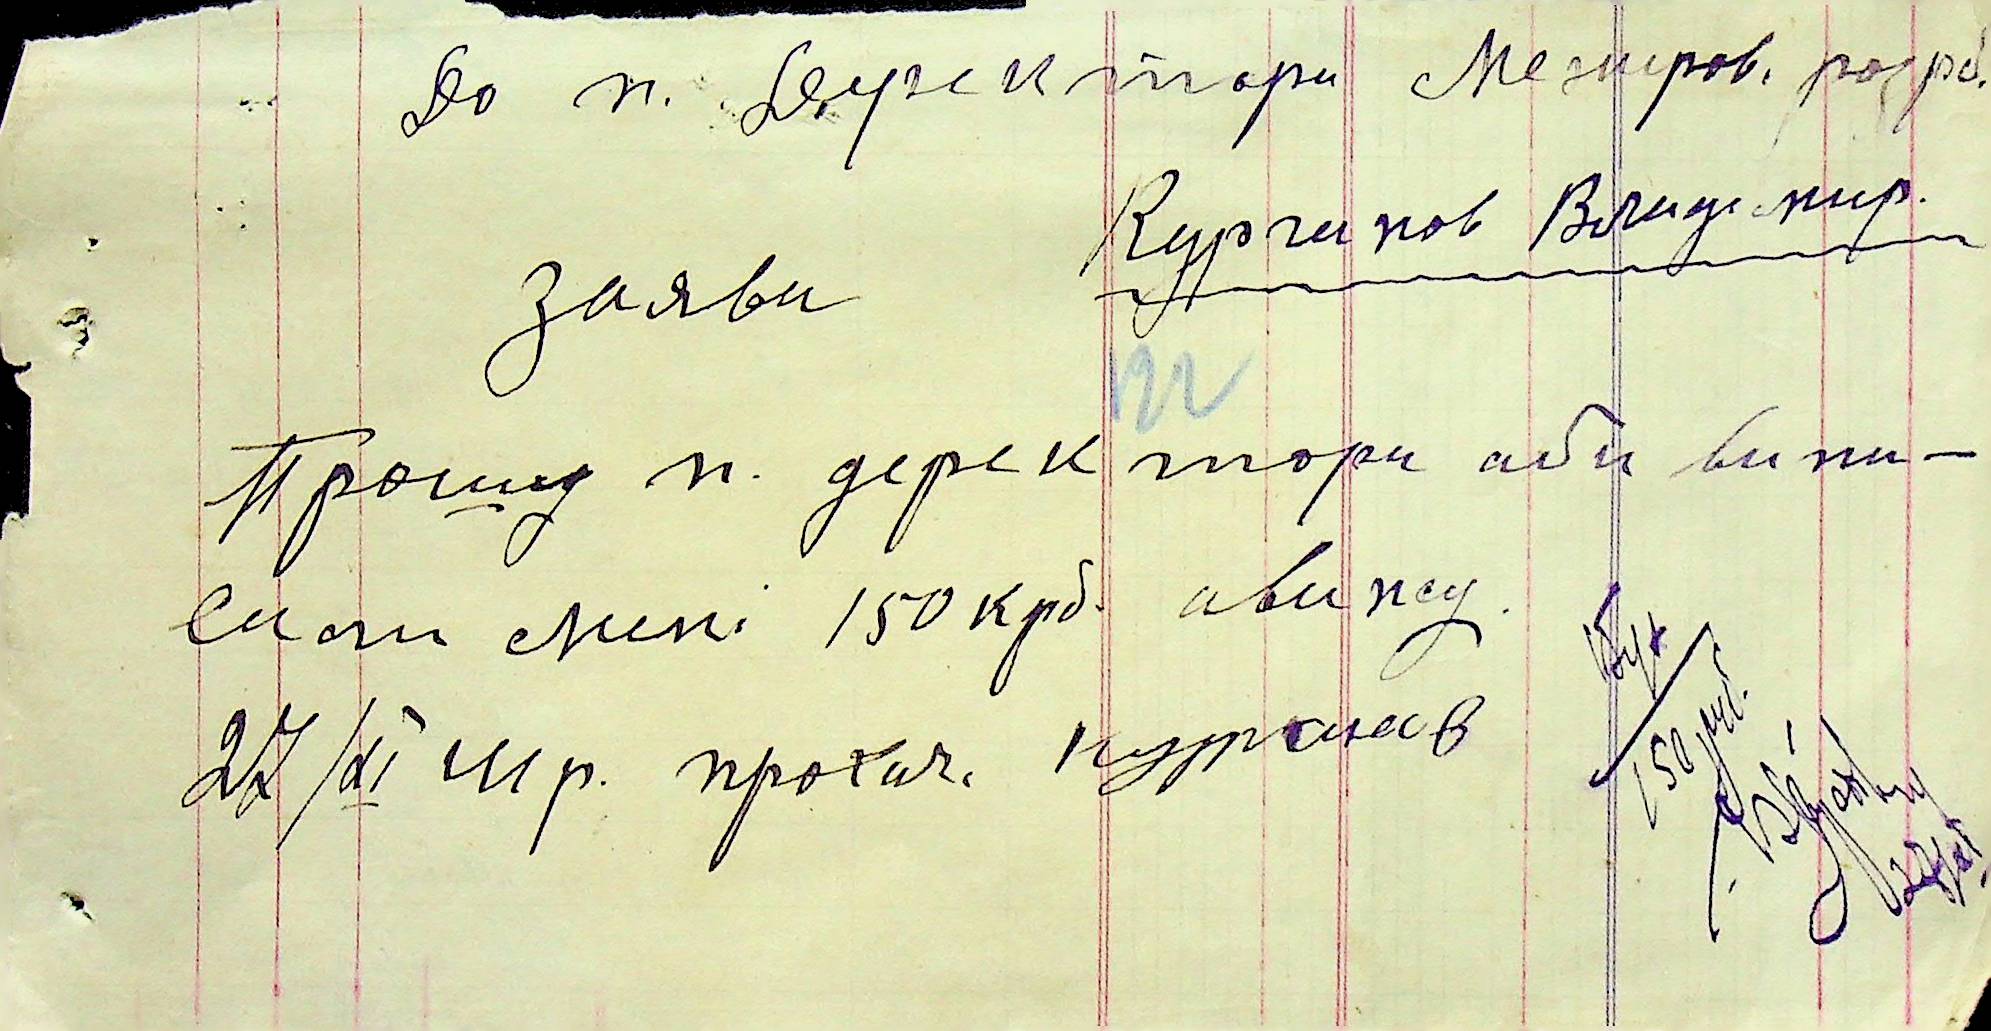 До п. Деректора Межиров. розрб.
Курганов Владимир.
Заява
122
Прошу п. деректора аби випи-
сали мені 150 крб. авансу.
27/XI 41 р. прохач. Курганов
Бух
150 крб.
27/XI